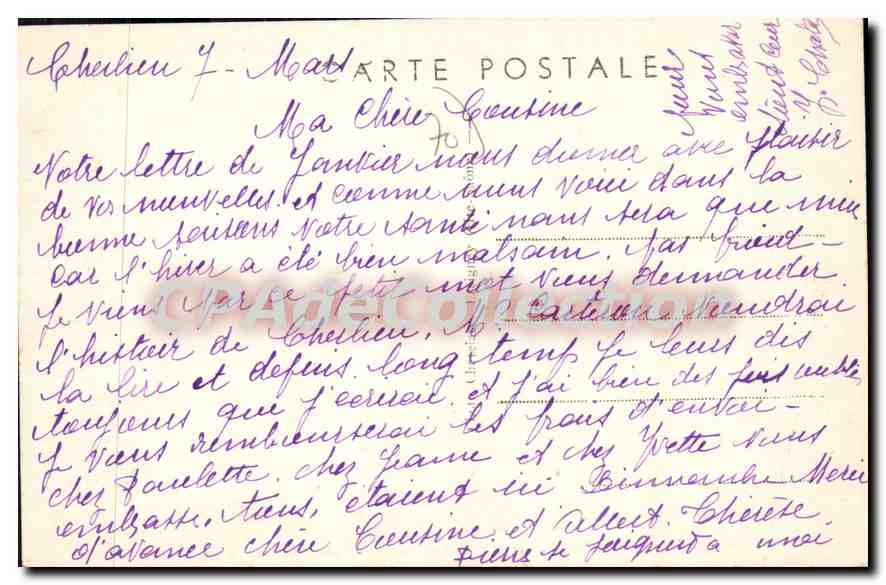 Cherlieu 7 - Mars
CARTE POSTALE
Ma Chère Cousine
Notre lettre de Janvier nous donner avec plaisir
de vos nouvelles. et comme nous voici dans la
bonne saisons Notre santé nous sera que mieu
car l'hiver a été bien malsain. pas froid -
Je viens par se petit mot vous demander
l'histoir de Cherlieu, Mr carteron viendrai
la lire et depuis long temp Je leurs dis
toujours que j'ecrirai. et j'ai bien des fois oublié
Je vous rembourserai les frais d'envoi -
chez Paulette. chez Jeanne et chez Yvette vous
embrasse. tous, étaient ici Dimanche Merci
d'avance chère Cousine et Albert. Thérèse
Pierre se joignent a moi
pour
vous
embrasser
CPA de Collection